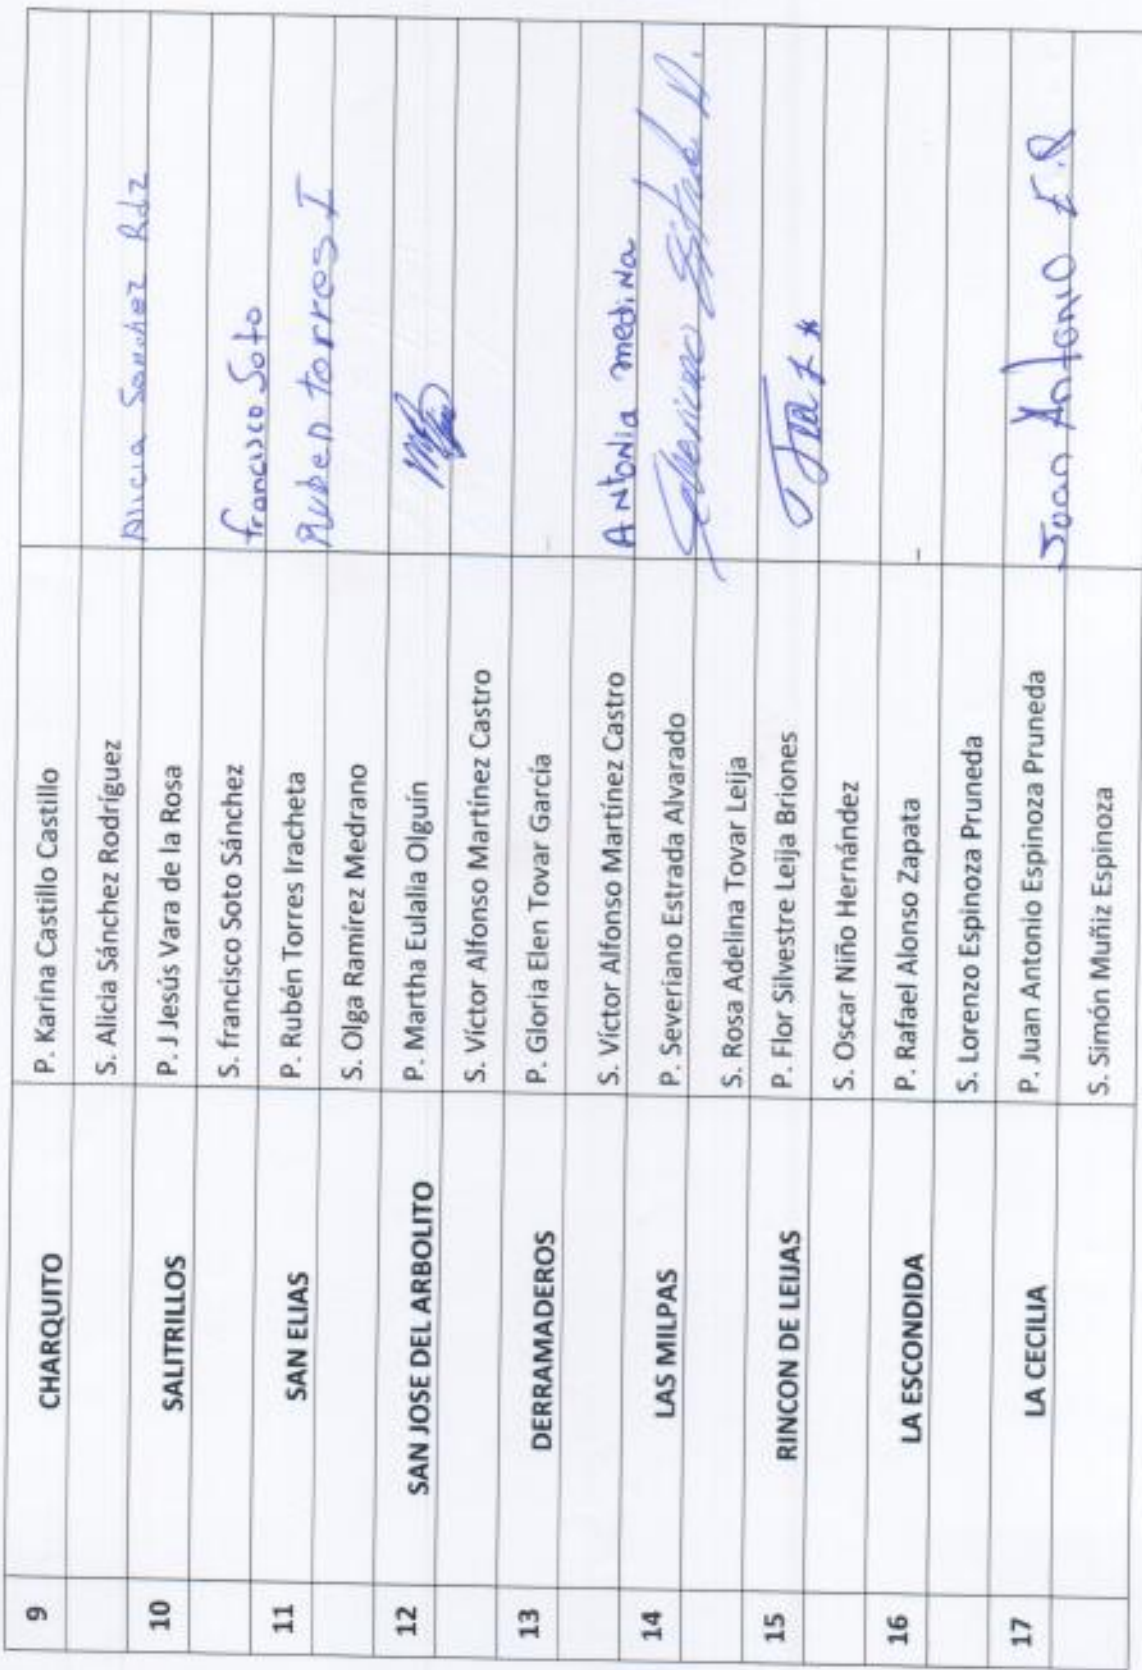 9 CHARQUITO P. Karina Castillo Castillo
S. Alicia Sánchez Rodríguez Alicia Sanchez Rdz
10 SALITRILLOS P. J Jesús Vara de la Rosa
S. francisco Soto Sánchez francisco Soto
11 SAN ELIAS P. Rubén Torres Iracheta Ruben torres I
S. Olga Ramírez Medrano
12 SAN JOSE DEL ARBOLITO P. Martha Eulalia Olguín
S. Víctor Alfonso Martínez Castro
13 DERRAMADEROS P. Gloria Elen Tovar García
S. Víctor Alfonso Martínez Castro Antonia medina
14 LAS MILPAS P. Severiano Estrada Alvarado
S. Rosa Adelina Tovar Leija
15 RINCON DE LEIJAS P. Flor Silvestre Leija Briones
S. Oscar Niño Hernández
16 LA ESCONDIDA P. Rafael Alonso Zapata
S. Lorenzo Espinoza Pruneda
17 LA CECILIA P. Juan Antonio Espinoza Pruneda Juan Antonio E.P
S. Simón Muñiz Espinoza